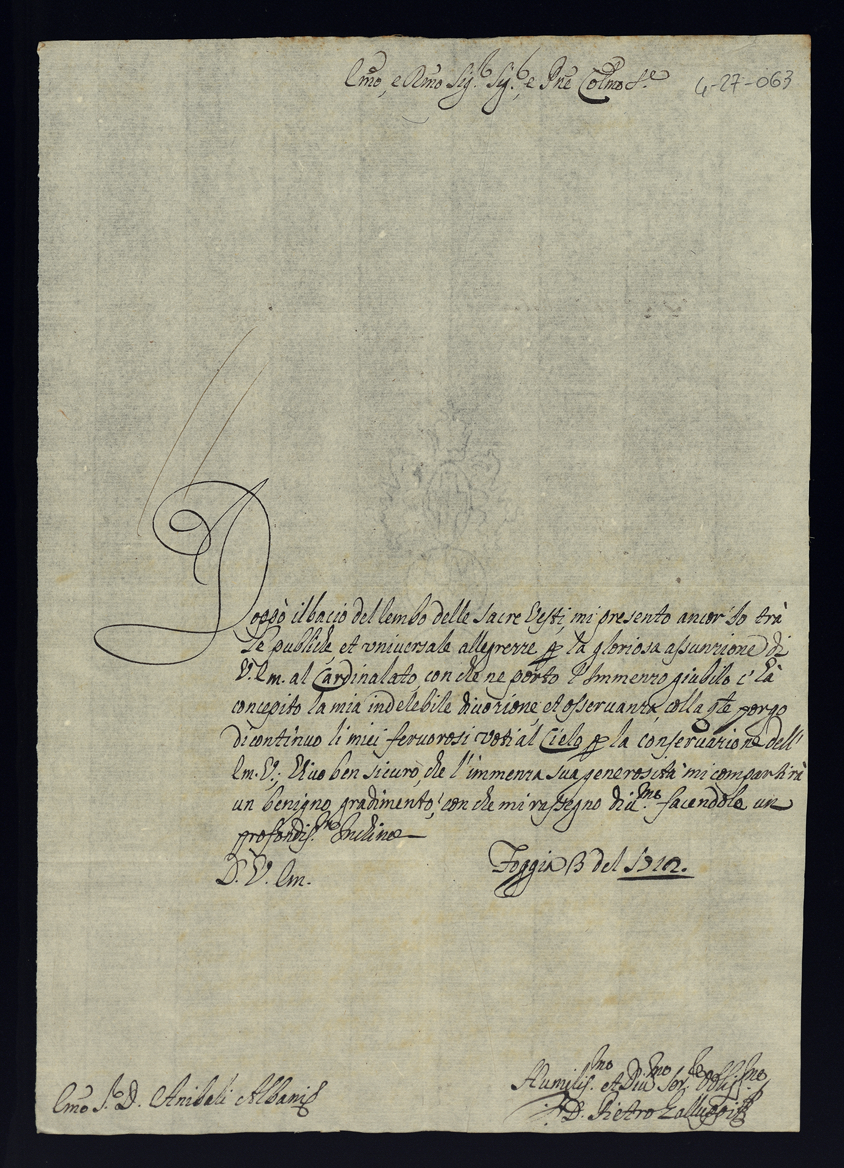 Emo, e Rmo Sigr. Sigr., e Pne Colmo
4-27-063
Doppò il bacio del lembo delle sacre Vesti, mi presento ancor'Io trà
le publiche et vniversale allegrezze p la gloriosa assunzione di
V. Em. al Cardinalato, con che ne porto l'Immenzo giubilo c'hà
concepito la mia indelebile divozione, et osservanza, colla qle porgo
di continuo li miei fervorosi voti al Cielo p la conservazione dell'
Em. V.; Vivo ben sicuro, che l'immenza sua generosità mi compartirà
un benigno gradimento, con che mi rassegno divmo. facendole un
profondis.mo Inchino
D. V. Em.
Foggia del 1712.
Emo S. D. Anibale Albani
Humilis.mo et Divmo Ser. Obligmo
D. Pietro